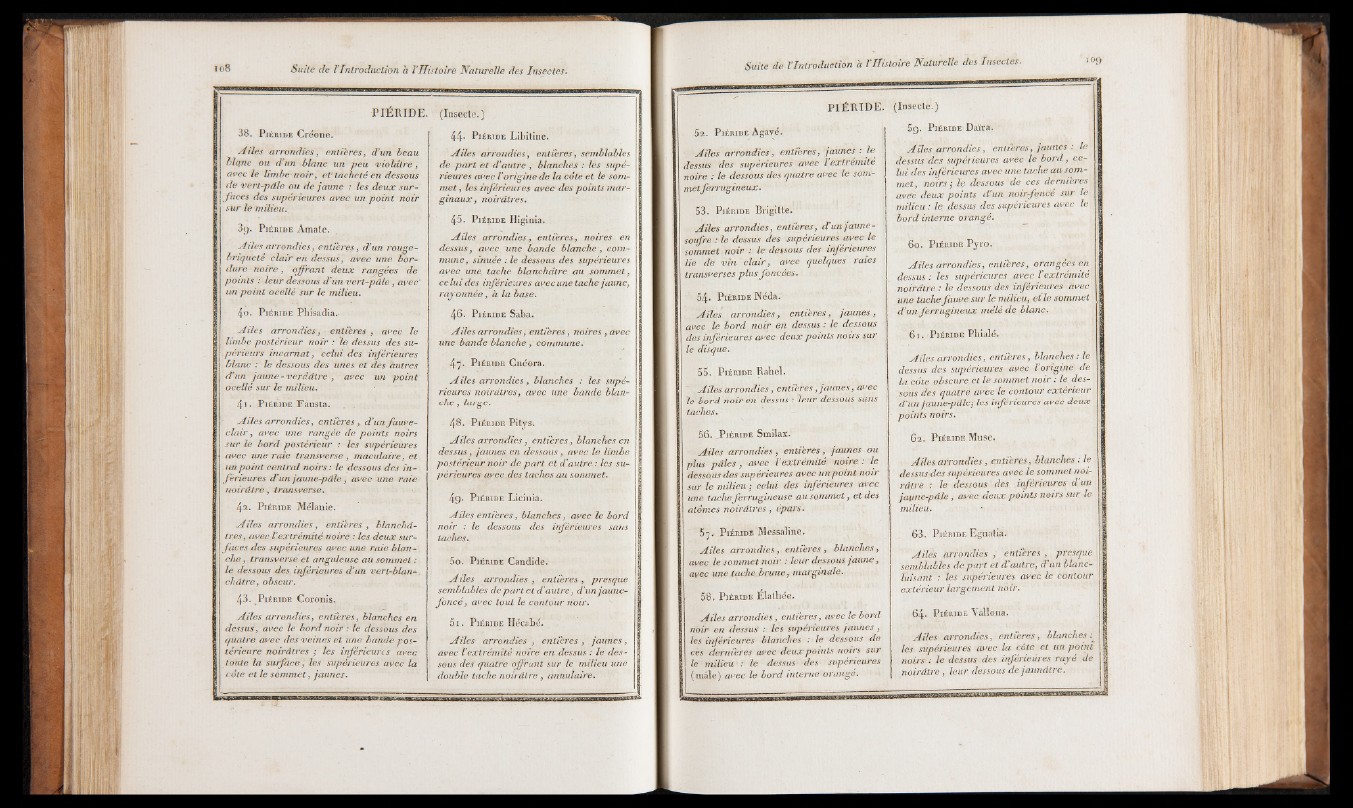 108
Suite de l'Introduction à l'Histoire Naturelle des Insectes.
PIÉRIDE. (Insecte.)
38. Piéride Créone.
Ailes arrondies, entières, d'un beau
blanc ou d'un blanc un peu violâtre,
avec le limbe noir, et tacheté en dessous
de vert-pâle ou de jaune : les deux sur-
faces des supérieures avec un point noir
sur le milieu.
39. Piéride Amate.
Ailes arrondies, entières, d'un rouge-
briqueté clair en dessus, avec une bor-
dure noire, offrant deux rangées de
points : leur dessous d'un vert-pâle, avec
un point ocellé sur le milieu.
40. Piéride Phisadia.
Ailes arrondies, entières, avec le
limbe postérieur noir : le dessus des su-
périeurs incarnat, celui des inférieures
blanc : le dessous des unes et des autres
d'un jaune-verdâtre, avec un point
ocellé sur le milieu.
41. Piéride Fausta.
Ailes arrondies, entières, d'un fauve-
clair, avec une rangée de points noirs
sur le bord postérieur : les supérieures
avec une raie transverse, maculaire, et
un point central noirs : le dessous des in-
férieures d'un jaune-pâle, avec une raie
noirâtre, transverse.
42. Piéride Mélanie.
Ailes arrondies, entières, blanchâ-
tres, avec l'extrémité noire : les deux sur-
faces des supérieures avec une raie blan-
che, transverse et anguleuse au sommet :
le dessous des inférieures d'un vert-blan-
châtre, obscur.
43. Piéride Coronis.
Ailes arrondies, entières, blanches en
dessus, avec le bord noir : le dessous des
quatre avec des veines et une bande pos-
térieure noirâtres ; les inférieures avec
toute la surface, les supérieures avec la
côte et le sommet, jaunes.
44. Piéride Libitine.
Ailes arrondies, entières, semblables
de part et d'autre, blanches : les supé-
rieures avec l'origine de la côte et le som-
met, les inférieures avec des points mar-
ginaux, noirâtres.
45. Piéride Higinia.
Ailes arrondies, entières, noires en
dessus, avec une bande blanche, com-
mune, sinuée : le dessous des supérieures
avec une tache blanchâtre au sommet,
celui des inférieures avec une tache jaune,
rayonnée, à la base.
46. Piéride Saba.
Ailes arrondies, entières, noires, avec
une bande blanche, commune.
47. Piéride Cnéora.
Ailes arrondies, blanches : les supé-
rieures noirâtres, avec une bande blan-
che, large.
48. Piéride Pitys.
Ailes arrondies, entières, blanches en
dessus, jaunes en dessous, avec le limbe
postérieur noir de part et d'autre : les su-
périeures avec des taches au sommet.
49. Piéride Licinia.
Ailes entières, blanches, avec le bord
noir : le dessous des inférieures sans
taches.
50. Piéride Candide.
Ailes arrondies, entières, presque
semblables de part et d'autre, d'un jaune-
foncé, avec tout le contour noir.
51. Piéride Hécabé.
Ailes arrondies, entières, jaunes,
avec l'extrémité noire en dessus : le des-
sous des quatre offrant sur le milieu une
double tache noirâtre, annulaire.
Suite de l'Introduction à l'Histoire Naturelle des Insectes.
109
PIÉRIDE. (Insecte.)
52. Piéride Agavé.
Ailes arrondies, entières, jaunes : le
dessus des supérieures avec l'extrémité
noire : le dessous des quatre avec le som-
met ferrugineux.
53. Piéride Brigitte.
Ailes arrondies, entières, d'un jaune-
soufre : le dessus des supérieures avec le
sommet noir : le dessous des inférieures
lie de vin clair, avec quelques raies
transverses plus foncées.
54. Piéride Néda.
Ailes arrondies, entières, jaunes,
avec le bord noir en dessus : le dessous
des inférieures avec deux points noirs sur
le disque.
55. Piéride Rahel.
Ailes arrondies, entières, jaunes, avec
le bord noir en dessus : leur dessous sans
taches.
56. Piéride Smilax.
Ailes arrondies, entières, jaunes ou
plus pâles, avec l'extrémité noire : le
dessous des supérieures avec un point noir
sur le milieu ; celui des inférieures avec
une tache ferrugineuse au sommet, et des
atômes noirâtres, épars.
57. Piéride Messaline.
Ailes arrondies, entières, blanches,
avec le sommet noir : leur dessous jaune,
avec une tache brune, marginale.
58. Piéride Élathée.
Ailes arrondies, entières, avec le bord
noir en dessus : les supérieures jaunes,
les inférieures blanches : le dessous de
ces dernières avec deux points noirs sur
le milieu : le dessus des supérieures
(mâle) avec le bord interne orangé.
59. Piéride Daïra.
Ailes arrondies, entières, jaunes : le
dessus des supérieures avec le bord, ce-
lui des inférieures avec une tache au som-
met, noirs ; le dessous de ces dernières
avec deux points d'un noir-foncé sur le
milieu : le dessus des supérieures avec le
bord interne orangé.
60. Piéride Pyro.
Ailes arrondies, entières, orangées en
dessus : les supérieures avec l'extrémité
noirâtre : le dessous des inférieures avec
une tache fauve sur le milieu, et le sommet
d'un ferrugineux mêlé de blanc.
61. Piéride Phialé.
Ailes arrondies, entières, blanches : le
dessus des supérieures avec l'origine de
la côte obscure et le sommet noir : le des-
sous des quatre avec le contour extérieur
d'un jaune-pâle; les inférieures avec deux
points noirs.
62. Piéride Muse.
Ailes arrondies, entières, blanches : le
dessus des supérieures avec le sommet noi-
râtre : le dessous des inférieures d'un
jaune-pâle, avec deux points noirs sur le
milieu.
63. Piéride Egnatia.
Ailes arrondies, entières, presque
semblables de part et d'autre, d'un blanc-
luisant : les supérieures avec le contour
extérieur largement noir.
64. Piéride Vallona.
Ailes arrondies, entières, blanches :
les supérieures avec la côte et un point
noirs : le dessus des inférieures rayé de
noirâtre, leur dessous de jaunâtre.